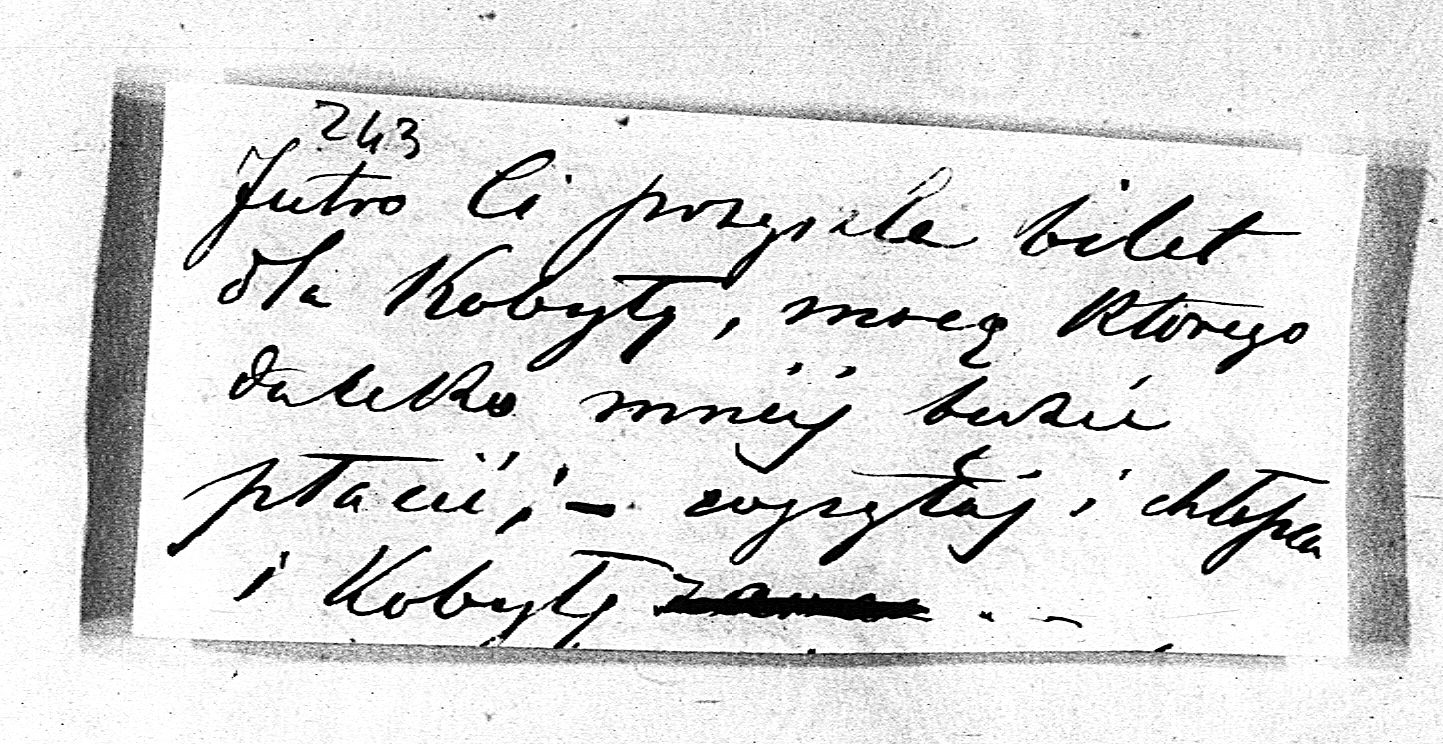 243
Jutro Ci poszylę bilet
dla Kobyły, mocą którego
daleko mniéj będzié
płacić; – wysyłaj i chłopca
i Kobyłę